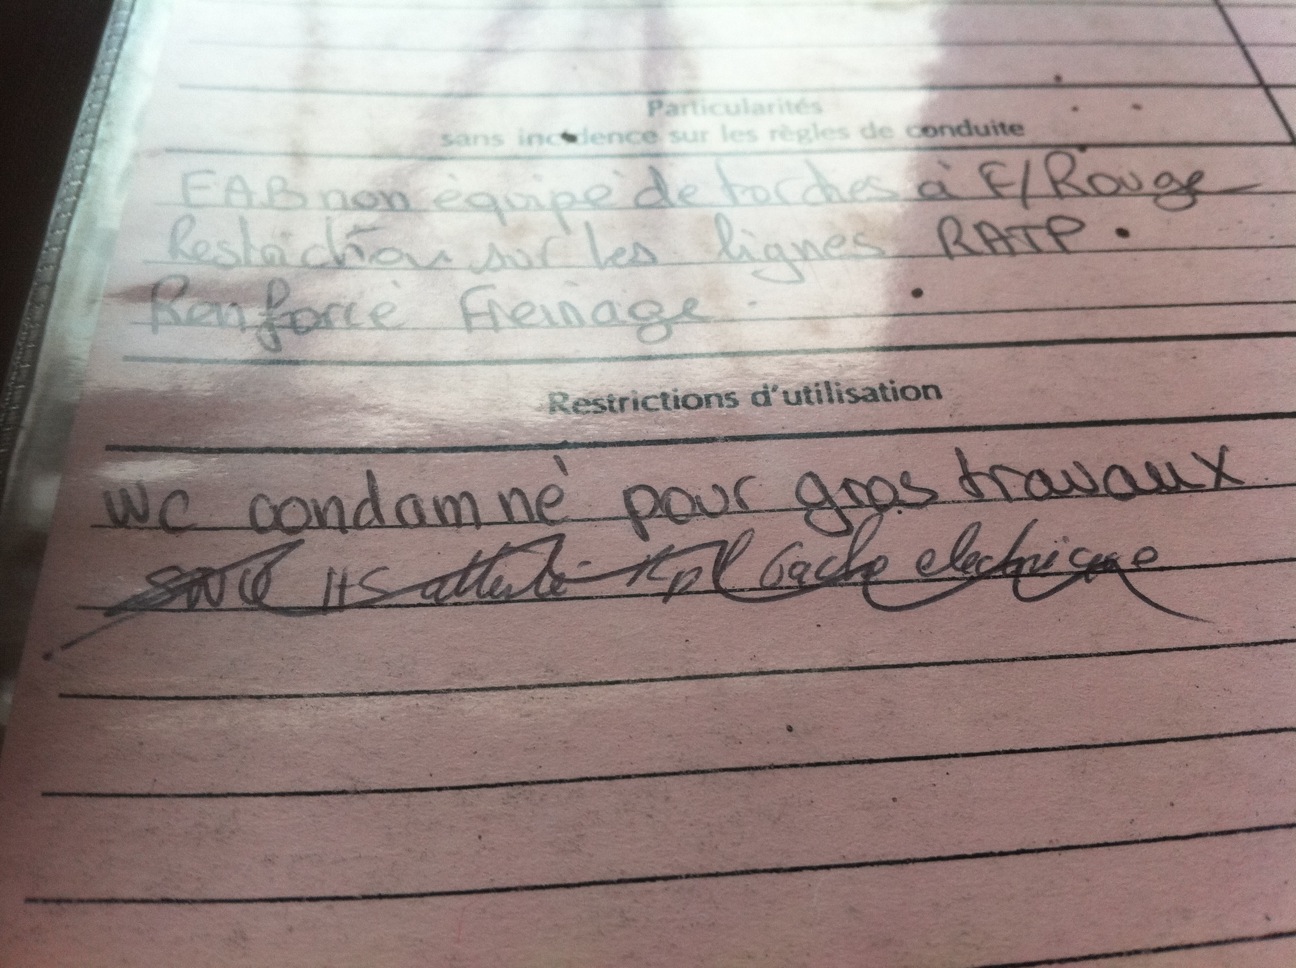 Particularités
sans incidence sur les règles de conduite
EAB non équipé de torches à F/Rouge
Restriction sur les lignes RATP.
Renforcé Freinage
Restrictions d'utilisation
WC condamné pour gros travaux
HS attente Rpl Gache electrique